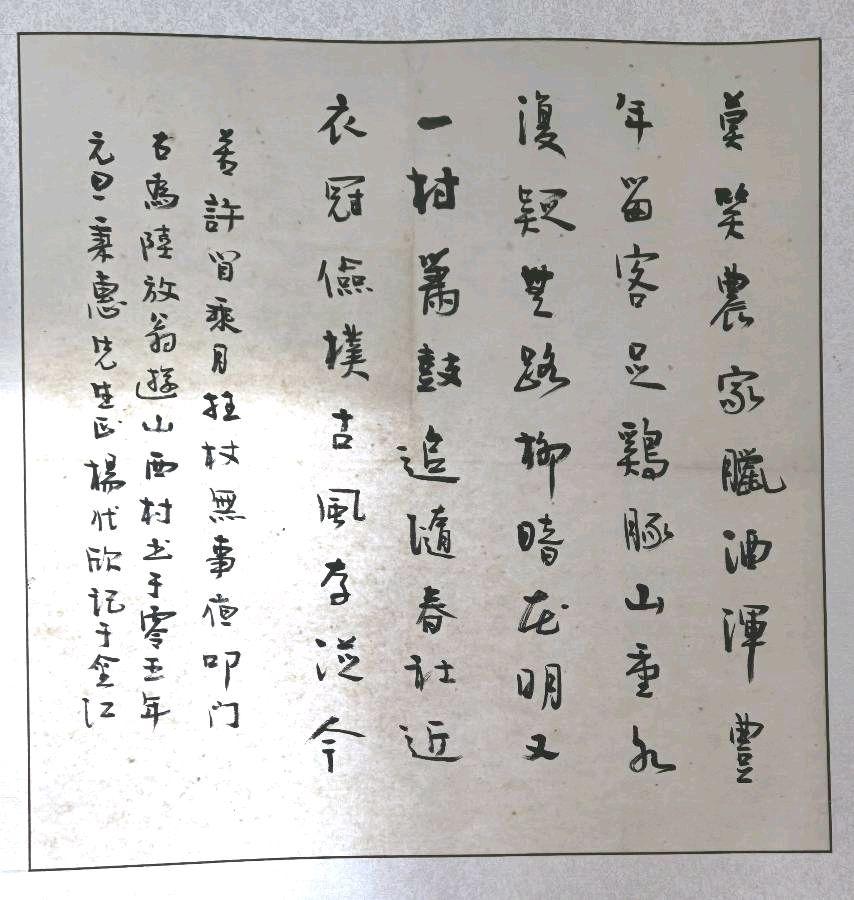 莫笑農家臘酒渾豐
年留客足鷄豚山重水
復疑無路柳暗花明又
一村簫鼓追隨春社近
衣冠儉樸古風存從今
若許閒乘月拄杖無事夜叩门
右爲陸放翁遊山西村书于零五年
元旦秉惠先生正楊代欣记于金江